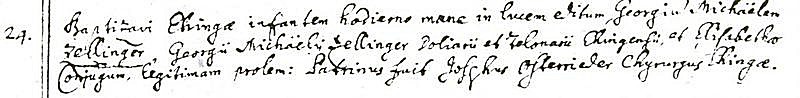 24. Baptizavi Ekingæ infantem hodierno mane in lucem editum Georgiū Michaëlem
Zellinger, Georgii Michaëlis Zellinger Doliarii et telonarii Ekingensis, et Elisabethæ
Conjugum, legitimam prolem: Patrinus fuit Josephus Osterrieder Chyrurgus Ekingæ.